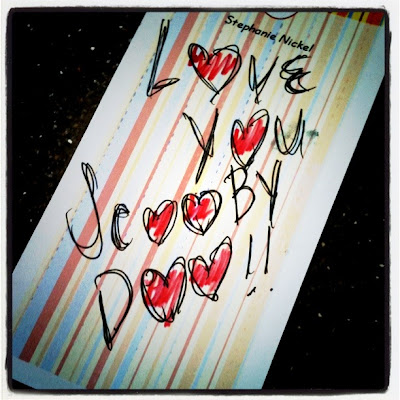 Stephanie Nickel
LOVE
YOU
ScooBY
Doo!!